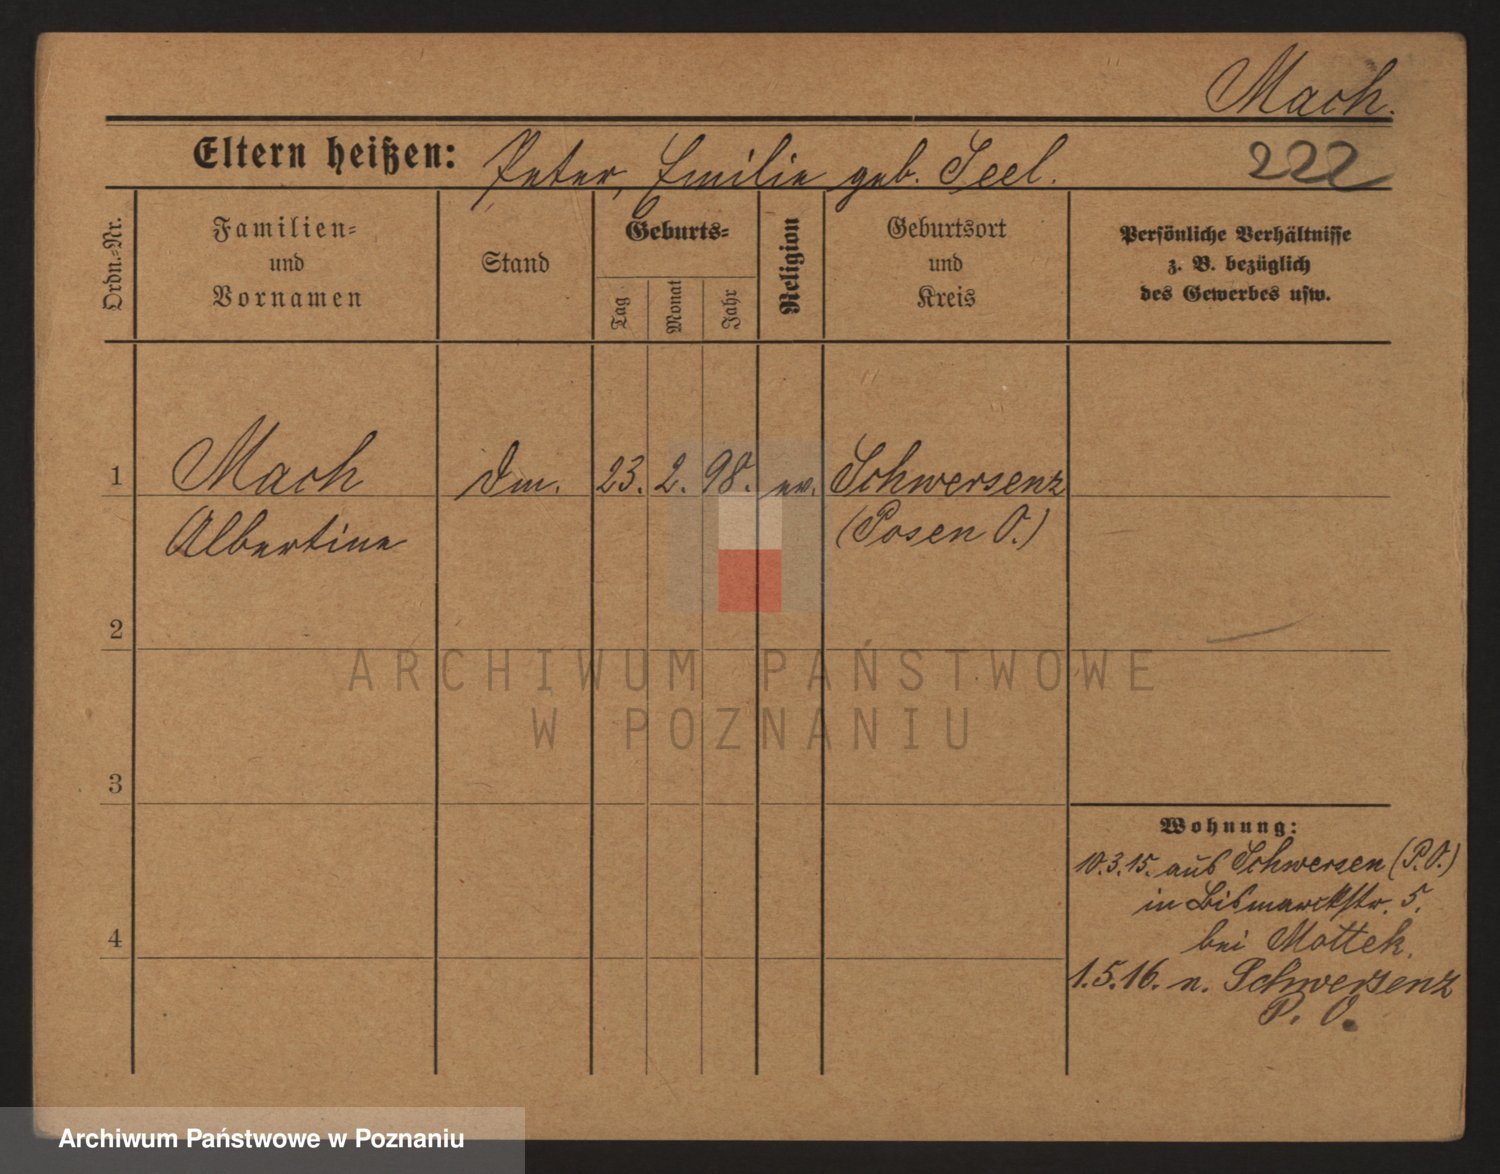 Mach.
Eltern heißen: Peter, Emilie geb. Seel.
222
Ordn.-Nr.
Familien-
und
Vornamen
Stand
Geburts-
Tag
Monat
Jahr
Religion
Geburtsort
und
Kreis
Persönliche Verhältnisse
z. B. bezüglich
des Gewerbes usw.
1 Mach Dm. 23. 2. 98. ev. Schwersenz
Albertine (Posen O.)
2
3
4
Wohnung:
10.3.15. aus Schwersen (P.O.)
in Bismarckstr. 5.
bei Mottek.
1.5.16. n. Schwersenz
P. O.
ARCHIWUM PAŃSTWOWE
W POZNANIU
Archiwum Państwowe w Poznaniu